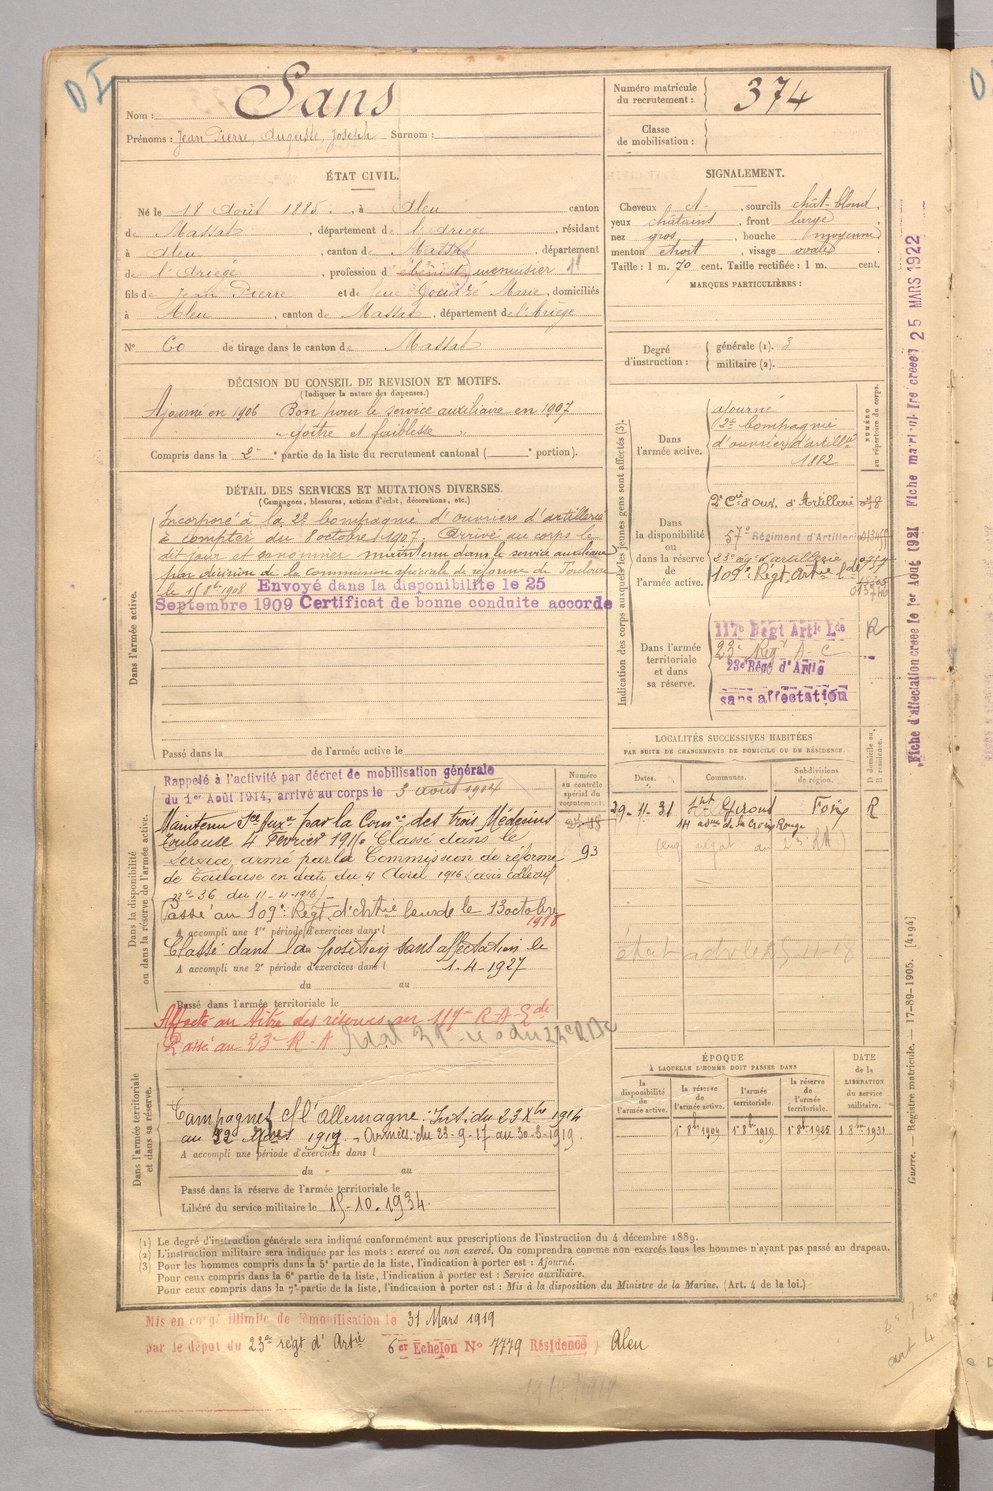 Nom : Sans
Prénoms : Jean Pierre, Auguste, Joseph Surnom :
ÉTAT CIVIL.
Né le 18 Août 1885, à Aleu canton
de Massat, département de l'Ariège, résidant
à Aleu, canton de Massat, département
de l'Ariège, profession d'ébéniste menuisier
fils de Jean Pierre et de feue Marie, domiciliés
à Aleu, canton de Massat, département de l'Ariège
N° 60 de tirage dans le canton de Massat
DÉCISION DU CONSEIL DE REVISION ET MOTIFS.
(Indiquer la nature des dispenses.)
Ajourné en 1906 Bon pour le service auxiliaire en 1907
goitre et faiblesse
Compris dans la 2e partie de la liste du recrutement cantonal ( e portion).
DÉTAIL DES SERVICES ET MUTATIONS DIVERSES.
(Campagnes, blessures, actions d'éclat, décorations, etc.)
Dans l'armée active.
Incorporé à la 2e Compagnie d'ouvriers d'artillerie
à compter du 8 octobre 1907. Arrivé au corps le
dit jour et canonnier maintenu dans le service auxiliaire
par décision de la commission spéciale de réforme de Toulouse
Envoyé dans la disponibilité le 25
Septembre 1909 Certificat de bonne conduite accordé
Passé dans la de l'armée active le
Dans la disponibilité
ou dans la réserve de l'armée active.
Rappelé à l'activité par décret de mobilisation générale
du 1er Août 1914, arrivé au corps le 3 août 1914
Maintenu Sce Auxre par la Comon des trois Médecins
Toulouse 4 Février 1916 Classé dans le
Service armé par la Commission de réforme
de Toulouse en date du 4 Avril 1916 (avis collectif
n° 36 du 11-4-1916)
Passé au 109e Régt d'Artie lourde le 13 octobre
1918
A accompli une 1re période d'exercices dans l
Classé dans la position sans affectation le
A accompli une 2e période d'exercices dans l 1-4-1927
du au
Passé dans l'armée territoriale le
Affecté au titre des réserves au 117e R-A-Lde
Passé au 23e R-A
Dans l'armée territoriale
et dans sa réserve.
Campagnes c/ l'Allemagne : Int. du 23 Xbre 1914
au 22 1917 - Armées : du 23-9-17 au 30-3-1919.
A accompli une période d'exercices dans l
du au
Passé dans la réserve de l'armée territoriale le
Libéré du service militaire le 15-10-1934.
Numéro
au contrôle
spécial du
recrutement.
93
Numéro matricule
du recrutement : 374
Classe
de mobilisation :
SIGNALEMENT.
Cheveux ct, sourcils chât-blond,
yeux châtains, front large,
nez gros, bouche moyenne
menton étroit, visage ovale
Taille : 1 m. 70 cent. Taille rectifiée : 1 m. cent.
MARQUES PARTICULIÈRES :
Degré
d'instruction :
générale (1). 3
militaire (2).
Indication des corps auxquels les jeunes gens sont affectés (3).
NUMÉRO
au répertoire du corps.
Dans
l'armée active.
Ajourné
2e Compagnie
d'ouvriers d'artillie
1882
Dans
la disponibilité
ou
dans la réserve
de
l'armée active.
2e Cie d'ouv. d'Artillerie 078
57e Régiment d'Artillerie
23e rég. d'artillerie
109e Régt Artie Lde
Dans l'armée
territoriale
et dans
sa réserve.
117e Régt Artie Lde R
23e Régt A-C
23e Régt d'Artie
sans affectation
LOCALITÉS SUCCESSIVES HABITÉES
PAR SUITE DE CHANGEMENTS DE DOMICILE OU DE RÉSIDENCE.
Dates.
Communes.
Subdivisions
de région.
D domicile ou
R résidence.
29-11-31 St Girons Foix R
14 de la Croix Rouge
ÉPOQUE
À LAQUELLE L'HOMME DOIT PASSER DANS
la
disponibilité
de
l'armée active.
la réserve
de
l'armée active.
l'armée
territoriale.
la réserve
de
l'armée
territoriale.
DATE
de la
LIBÉRATION
du service
militaire.
1er 8bre 1909 1er 8bre 1919 1er 8bre 1925 1er 8bre 1931
(1) Le degré d'instruction générale sera indiqué conformément aux prescriptions de l'instruction du 4 décembre 1889.
(2) L'instruction militaire sera indiquée par les mots : exercé ou non exercé. On comprendra comme non exercés tous les hommes n'ayant pas passé au drapeau.
(3) Pour les hommes compris dans la 5e partie de la liste, l'indication à porter est : Ajourné.
Pour ceux compris dans la 6e partie de la liste, l'indication à porter est : Service auxiliaire.
Pour ceux compris dans la 7e partie de la liste, l'indication à porter est : Mis à la disposition du Ministre de la Marine. (Art. 4 de la loi.)
Mis en congé illimité de démobilisation le 31 Mars 1919
par le dépôt du 23e régt d'Artie 6er Echelon N° 7779 Résidence ) Aleu
Fiche d'affectation créée le 1er Août 1921
25 MARS 1922
Guerre. — Registre matricule. — 17-89-1905. [4194]